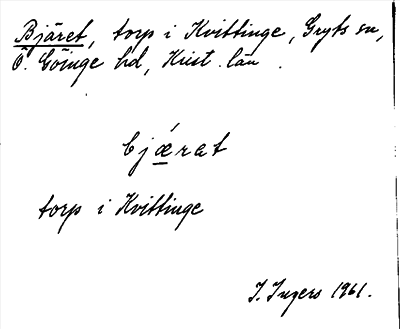 Bjäret, torp i Kvittinge, Gryts sn,
Ö. Göinge hd, Krist. län.
bjǽrat
torp i Kvittinge
I. Ingers 1961.